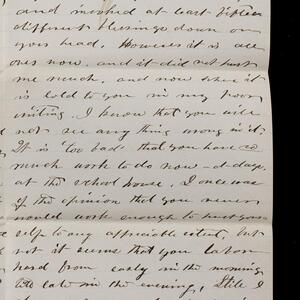 and invoked at least fifteen
different blessings down on
your head. However it is all
over now. and it did not hurt
me much and now when it
is told to you in my poor
writing. I know that you will
not see any thing wrong in it.
It is too bad that you have so
much work to do now-a-days.
at the school house. I once was
of the opinion that you never
would work enough to hurt your
self to any appreciable extent, but
not it seems that you labor
hard from early in the morning
late in the evening, Still I